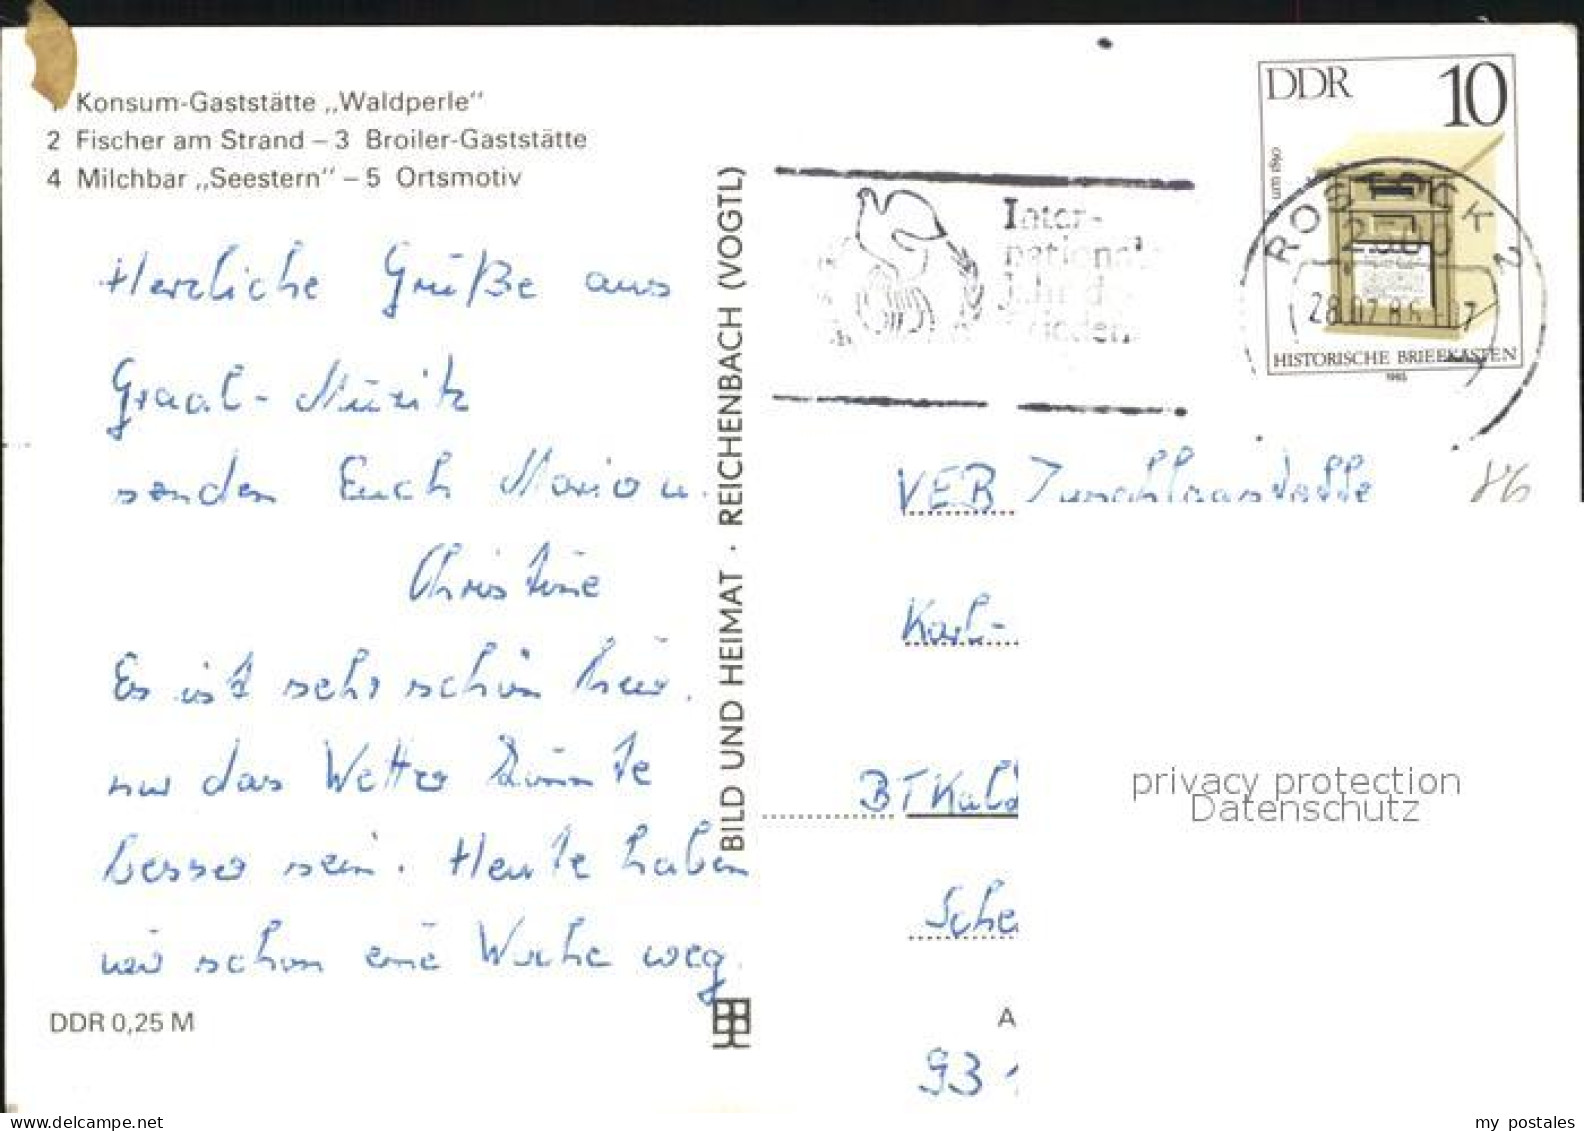 1 Konsum-Gaststätte „Waldperle"
2 Fischer am Strand – 3 Broiler-Gaststätte
4 Milchbar „Seestern" – 5 Ortsmotiv
Herzliche Grüße aus
Graal-Müritz
senden Euch Marion u.
Christine
Es ist sehr schön hier.
nur das Wetter könnte
besser sein. Heute haben
wir schon eine Woche weg.
DDR 0,25 M
BILD UND HEIMAT · REICHENBACH (VOGTL)
Inter-
nationale
Jahr des
Friedens
DDR 10
um 1850
HISTORISCHE BRIEFKÄSTEN
1985
ROSTOCK 2
2500
28.07.86
VEB
86
Karl-
BT
Sche
A
93 1
privacy protection
Datenschutz
my postales